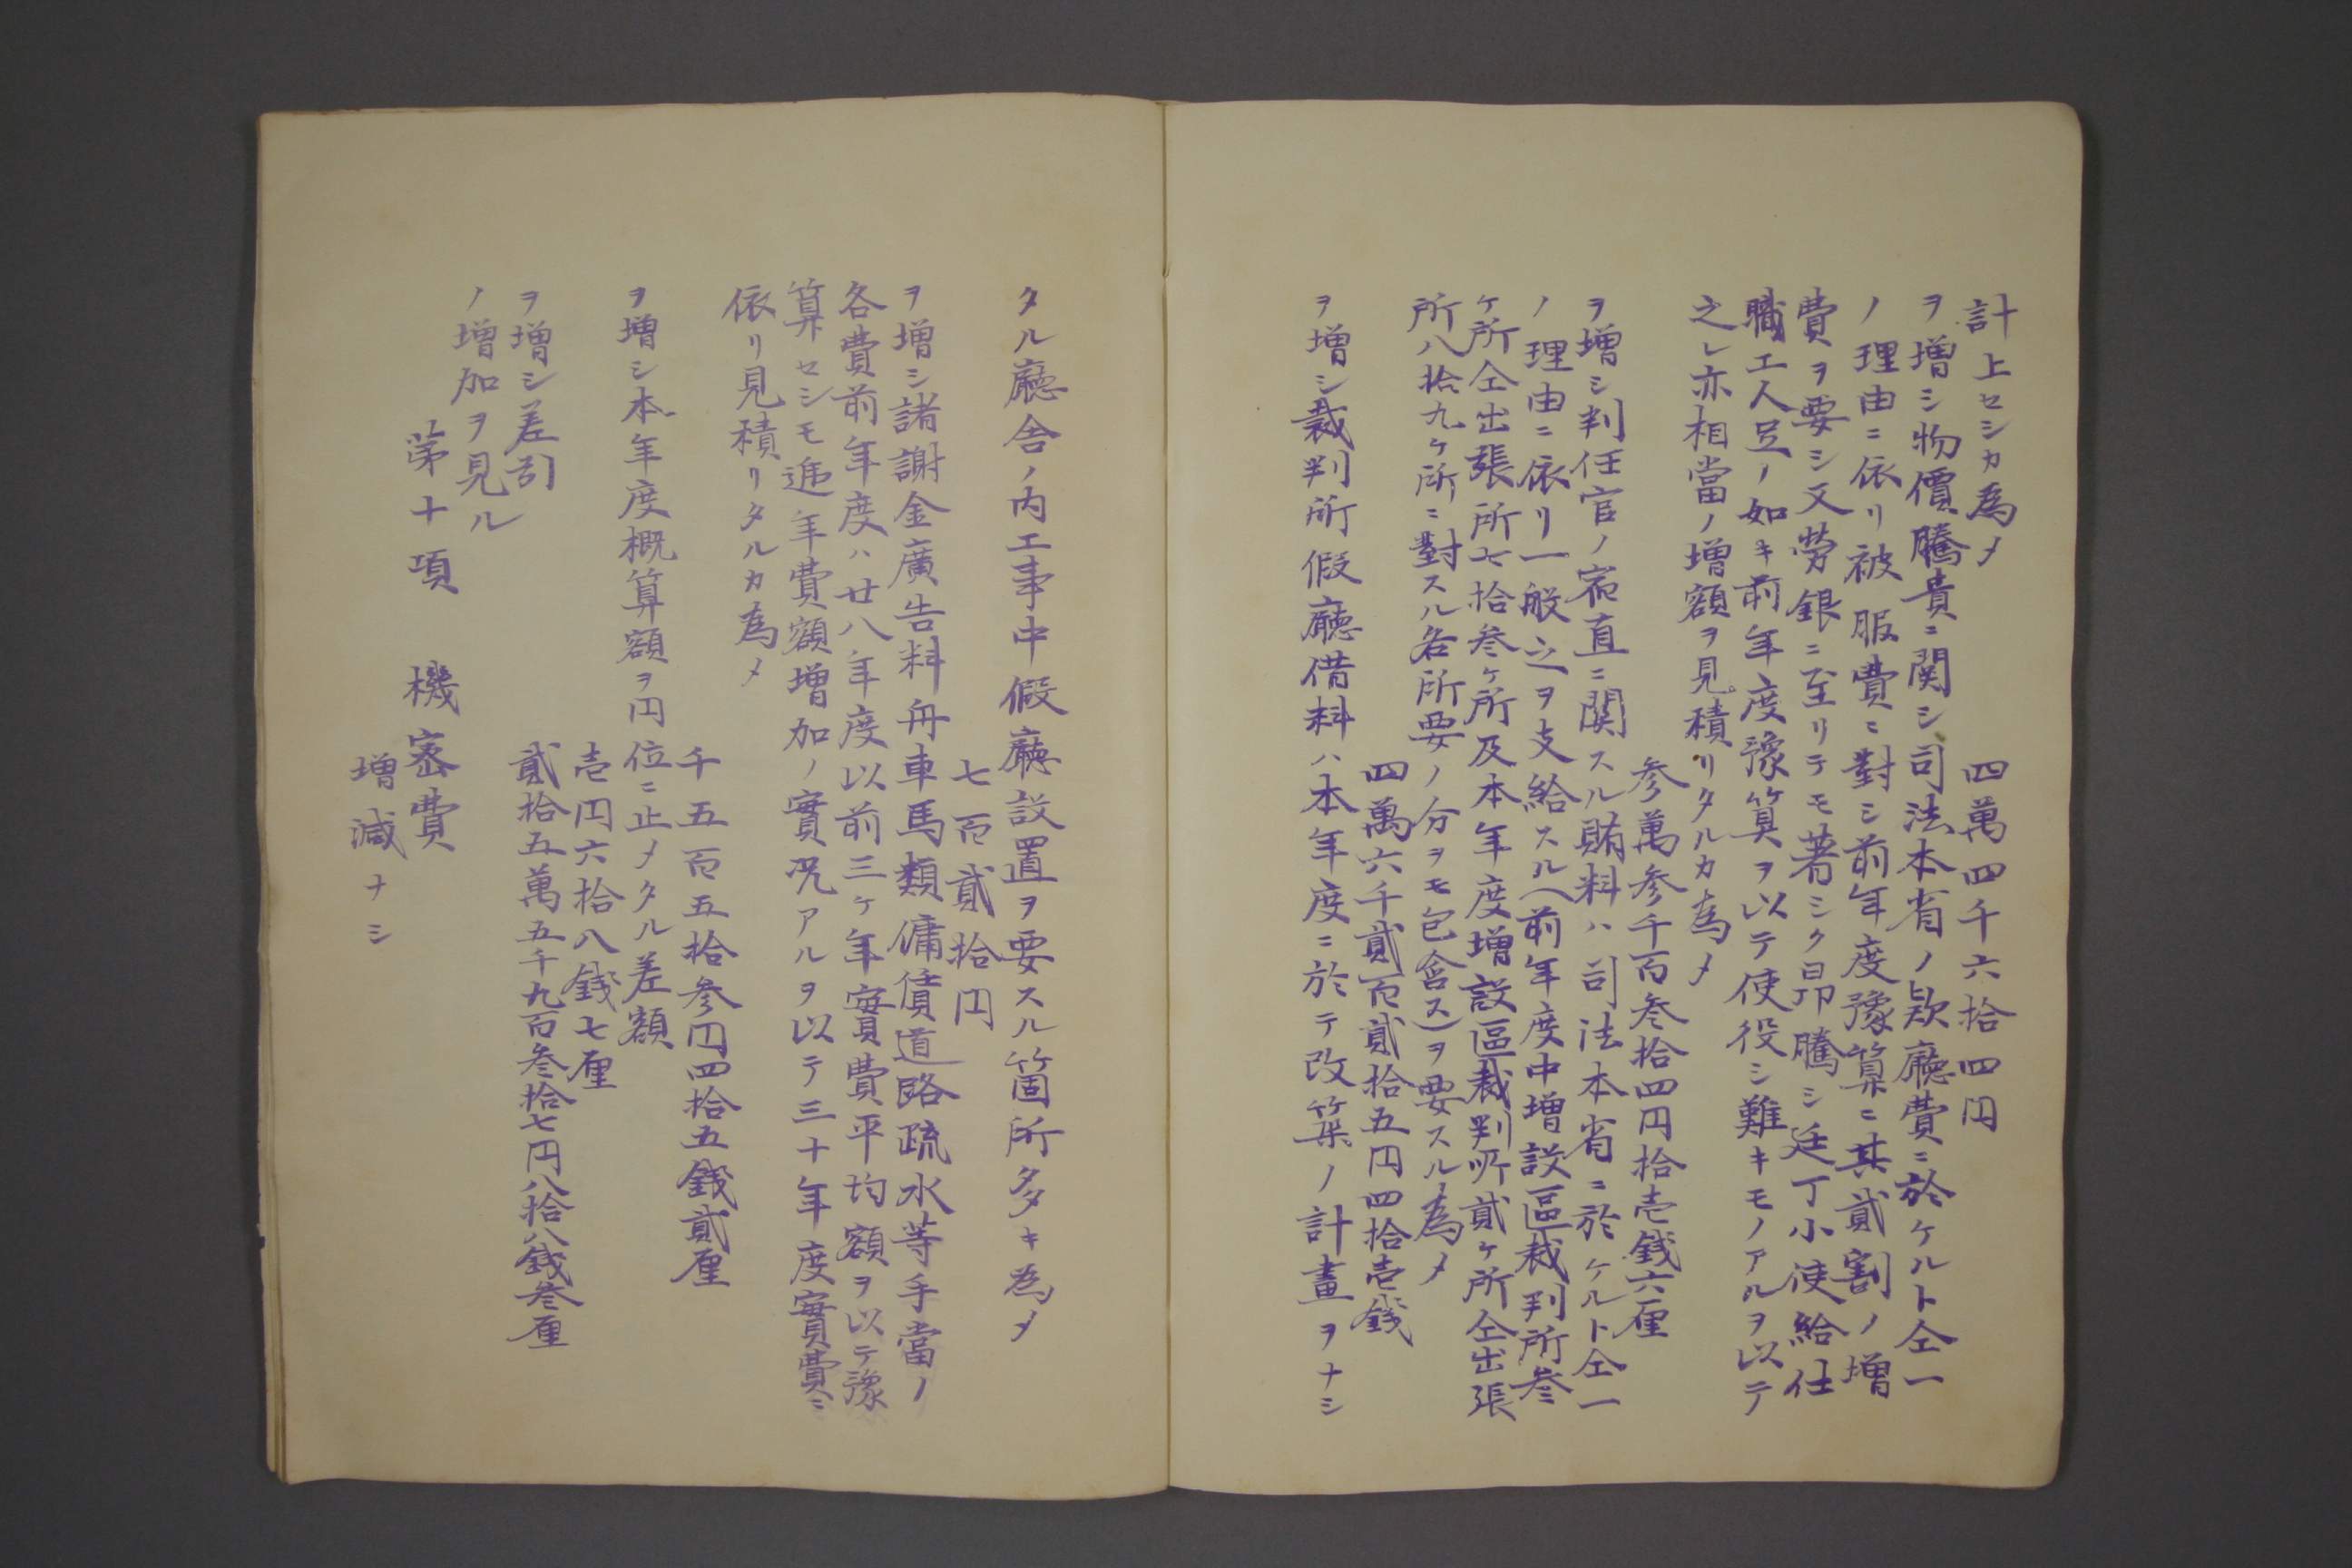 計上セシカ為メ
四萬四千六拾四円
ヲ増シ物價騰貴ニ関シ司法本省ノ欵廳費ニ於ケルト仝一
ノ理由ニ依リ被服費ニ對シ前年度豫算ニ其貳割ノ増
費ヲ要シ又勞銀ニ至リテモ著シク昂騰シ廷丁小使給仕
職工人足ノ如キ前年度豫算ヲ以テ使役シ難キモノアルヲ以テ
之レ亦相當ノ増額ヲ見積リタルカ為メ
参萬参千百参拾四円拾壱銭六厘
ヲ増シ判任官ノ宿直ニ関スル賄料ハ司法本省ニ於ケルト仝一
ノ理由ニ依リ一般之ヲ支給スル(前年度中増設區裁判所参
ケ所仝出張所七拾参ケ所及本年度増設區裁判所貳ケ所仝出張
所八拾九ケ所ニ對スル各所要ノ分ヲモ包含ス)ヲ要スル為メ
四萬六千貳百貳拾五円四拾壱銭
ヲ増シ裁判所假廳借料ハ本年度ニ於テ改築ノ計畫ヲナシ
タル廳舎ノ内工事中假廳設置ヲ要スル箇所多キ為メ
七百貳拾円
ヲ増シ諸謝金廣告料舟車馬類傭債道路疏水等手當ノ
各費前年度ハ廿八年度以前三ケ年實費平均額ヲ以テ豫
算セシモ逓年費額増加ノ實况アルヲ以テ三十年度實費ニ
依リ見積リタルカ為メ
千五百五拾参円四拾五銭貳厘
ヲ増シ本年度概算額ヲ円位ニ止メタル差額
壱円六拾八銭七厘
ヲ増シ差引
貳拾五萬五千九百参拾七円八拾八銭参厘
ノ増加ヲ見ル
第十項 機密費
増減ナシ